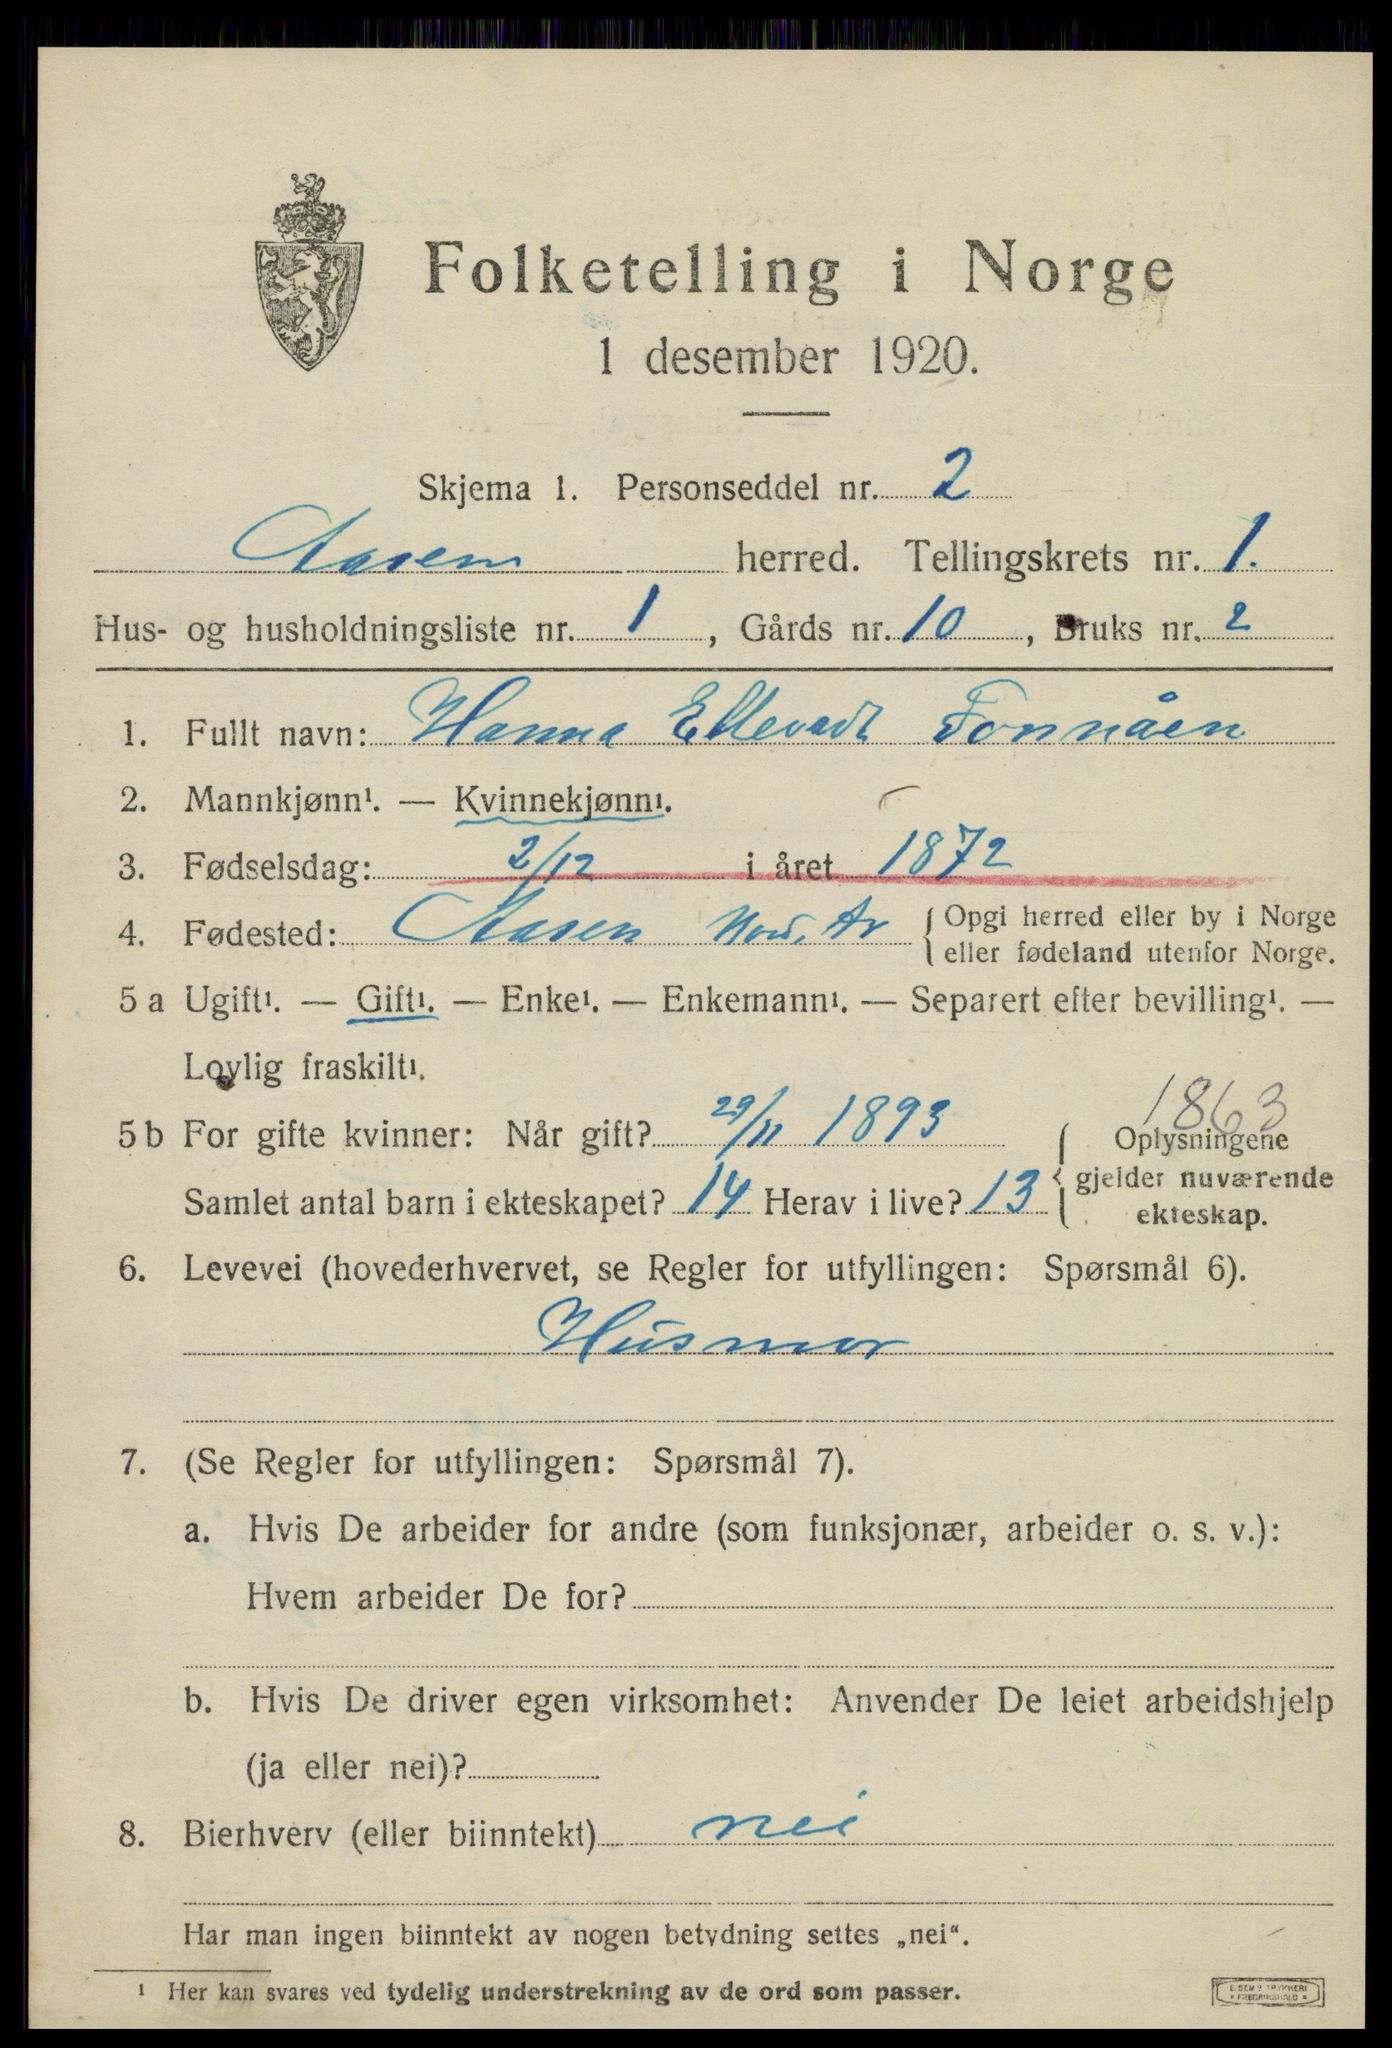 Folketelling i Norge
1 desember 1920.
Skjema 1. Personseddel nr. 2
Aasen herred. Tellingskrets nr. 1.
Hus- og husholdningsliste nr. 1, Gårds nr. 10, Bruks nr. 2
1. Fullt navn: Hanna Ellevadt Fonnåen
2. Mannkjønn¹. — Kvinnekjønn¹.
3. Fødselsdag: 2/12 i året 1872
4. Fødested: Aasen { Opgi herred eller by i Norge
eller fødeland utenfor Norge.
5 a Ugift¹. — Gift¹. — Enke¹. — Enkemann¹. — Separert efter bevilling¹. —
Lovlig fraskilt¹.
1863
5 b For gifte kvinner: Når gift? 29/11 1893 { Oplysningene
gjelder nuværende
Samlet antal barn i ekteskapet? 14 Herav i live? 13
ekteskap.
6. Levevei (hovederhvervet, se Regler for utfyllingen: Spørsmål 6).
Husmor
7. (Se Regler for utfyllingen: Spørsmål 7).
a. Hvis De arbeider for andre (som funksjonær, arbeider o. s. v.):
Hvem arbeider De for?
b. Hvis De driver egen virksomhet: Anvender De leiet arbeidshjelp
(ja eller nei)?
8. Bierhverv (eller biinntekt) nei
Har man ingen biinntekt av nogen betydning settes „nei“.
¹ Her kan svares ved tydelig understrekning av de ord som passer.